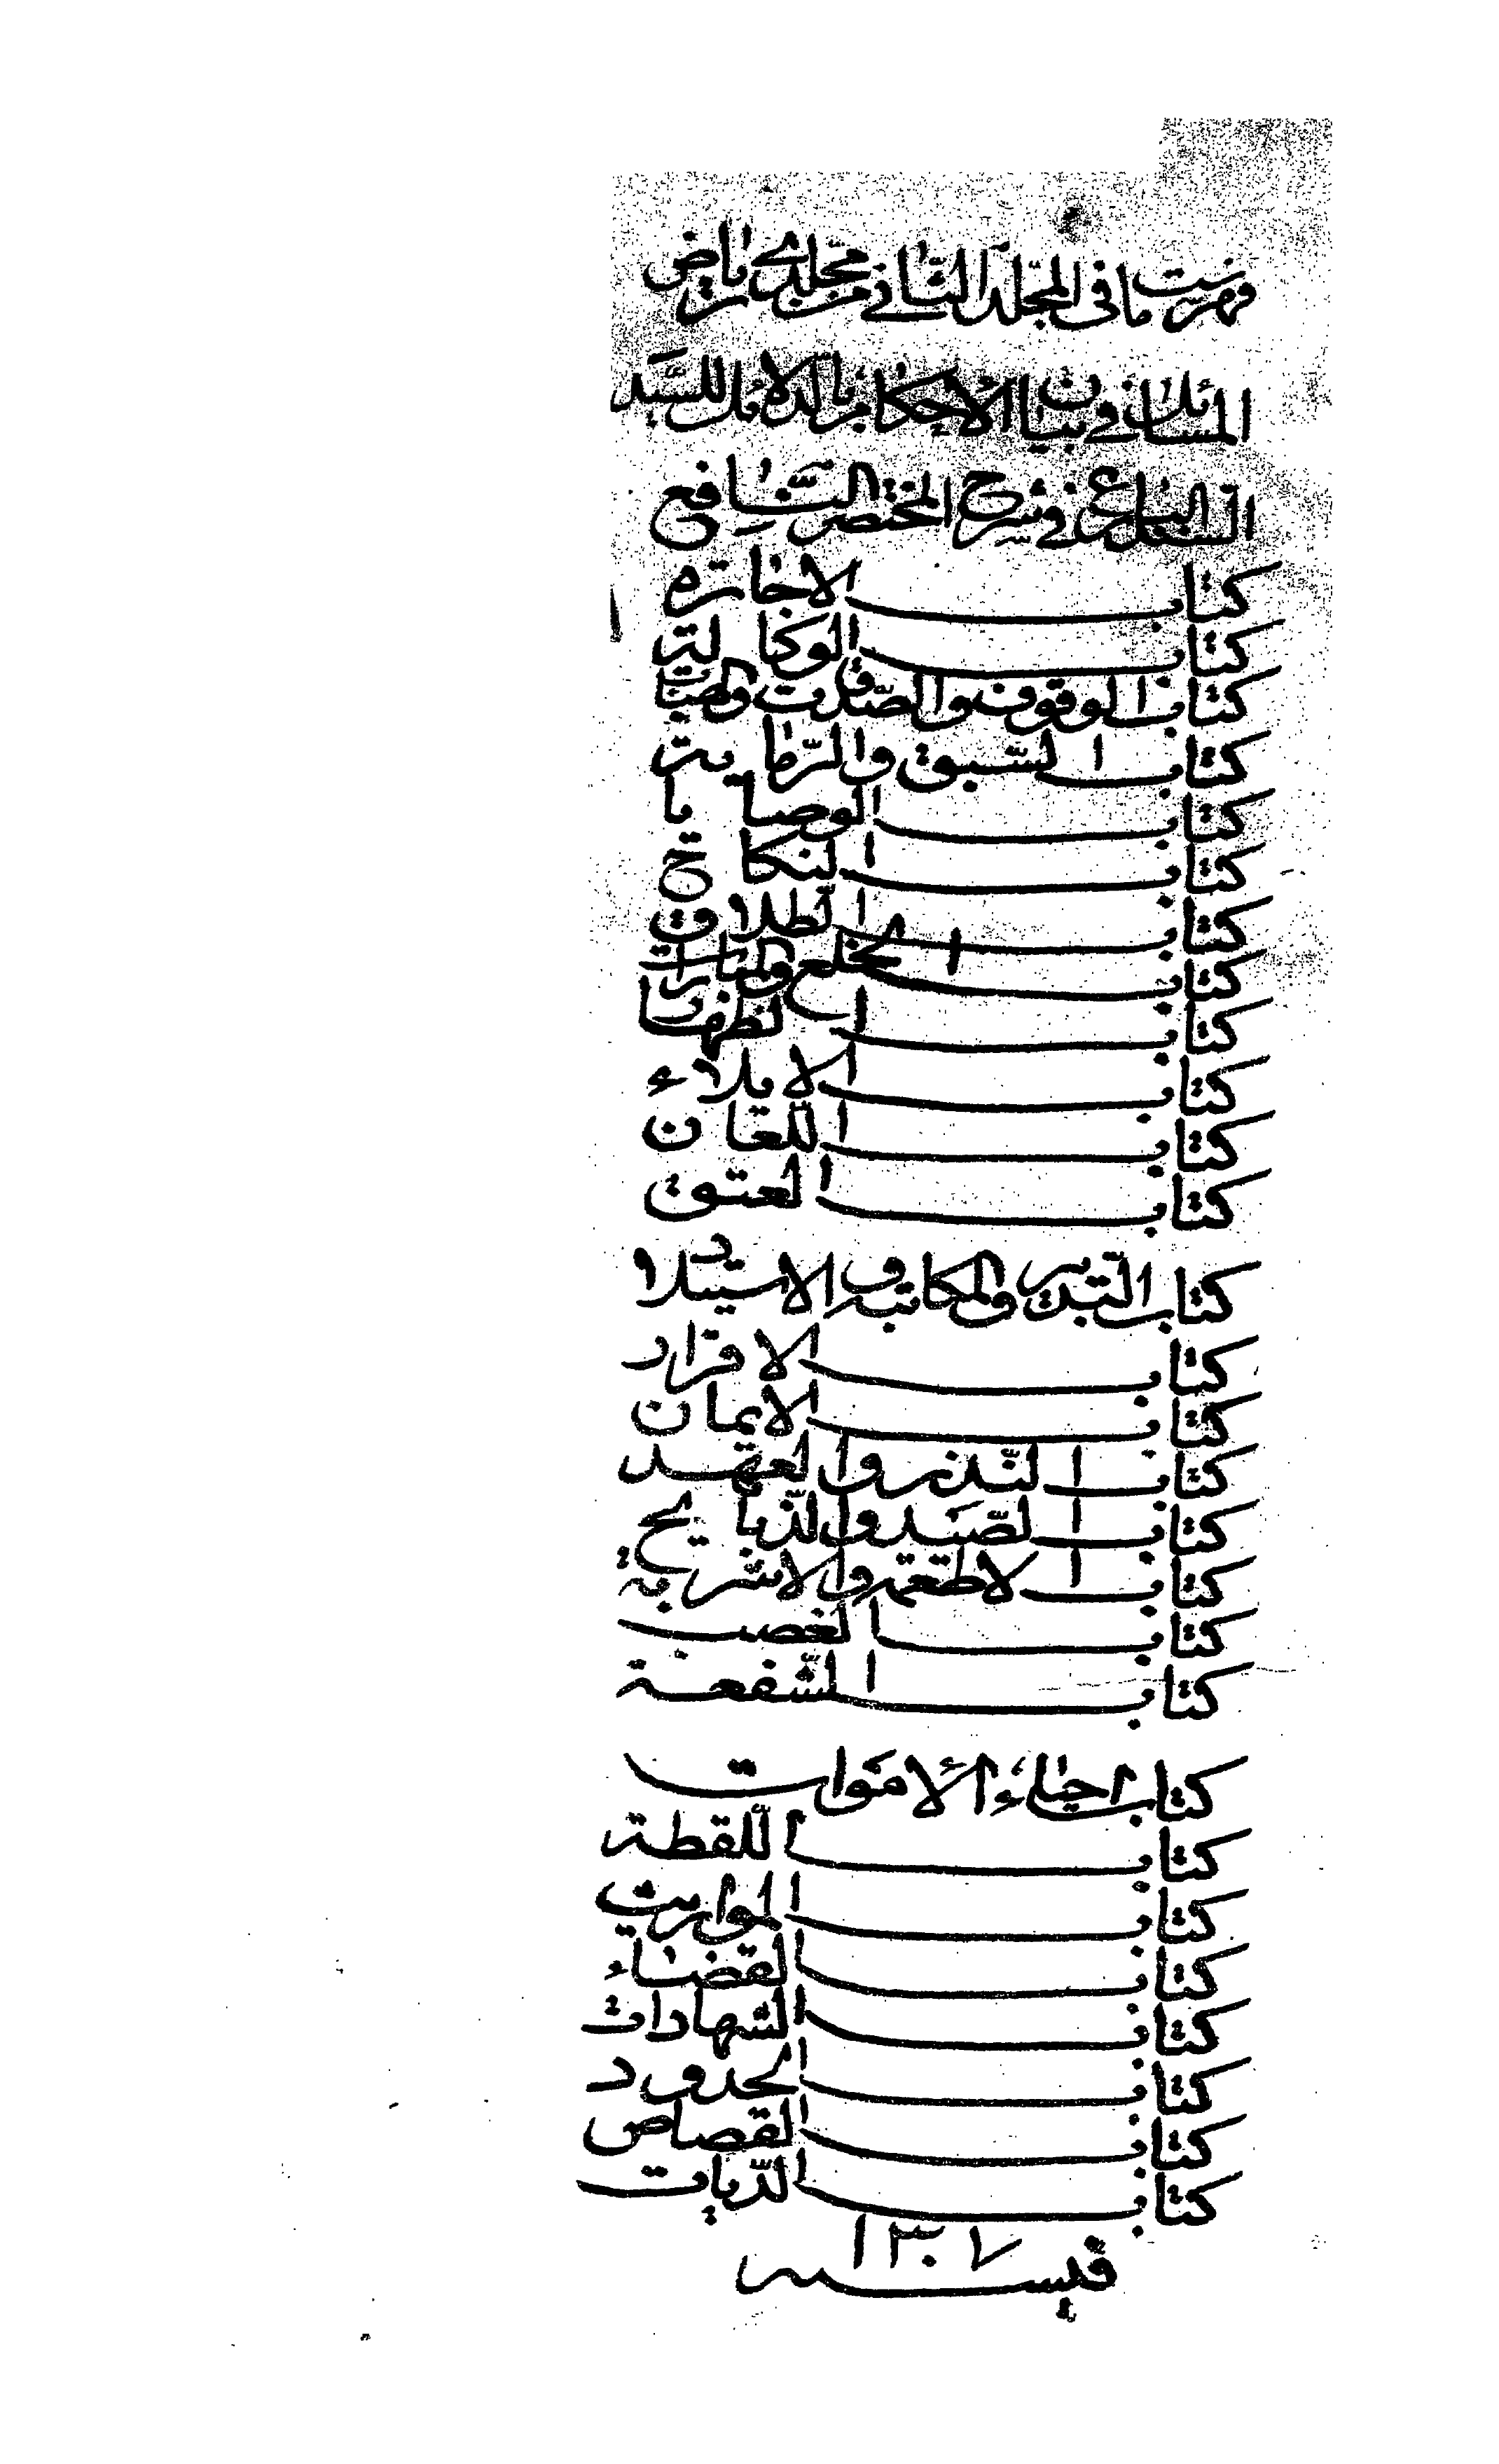 فهرست ما فى المجلّد الثّانى من مجلّدى رياض
المسائل فى بيان الأحكام بالدلائل للسّيّد
السّند البارع فى شرح المختصر النّافع
كتاب الاجارة
كتاب الوكالة
كتاب الوقوف والصّدقات والهبات
كتاب السّبق والرّماية
كتاب الوصايا
كتاب النكاح
كتاب الطلاق
كتاب الخلع والمبارات
كتاب الظهار
كتاب الايلاء
كتاب اللّعان
كتاب العتق
كتاب التّدبير والمكاتبه والاستيلاد
كتاب الاقرار
كتاب الايمان
كتاب النّذر والعهد
كتاب الصّيد والذّبايح
كتاب الاطعمة والاشربة
كتاب الغصب
كتاب الشّفعة
كتاب احياء الأموات
كتاب اللّقطة
كتاب المواريث
كتاب القضاء
كتاب الشهادات
كتاب الحدود
كتاب القصاص
كتاب الدّيات
١٣٠٧